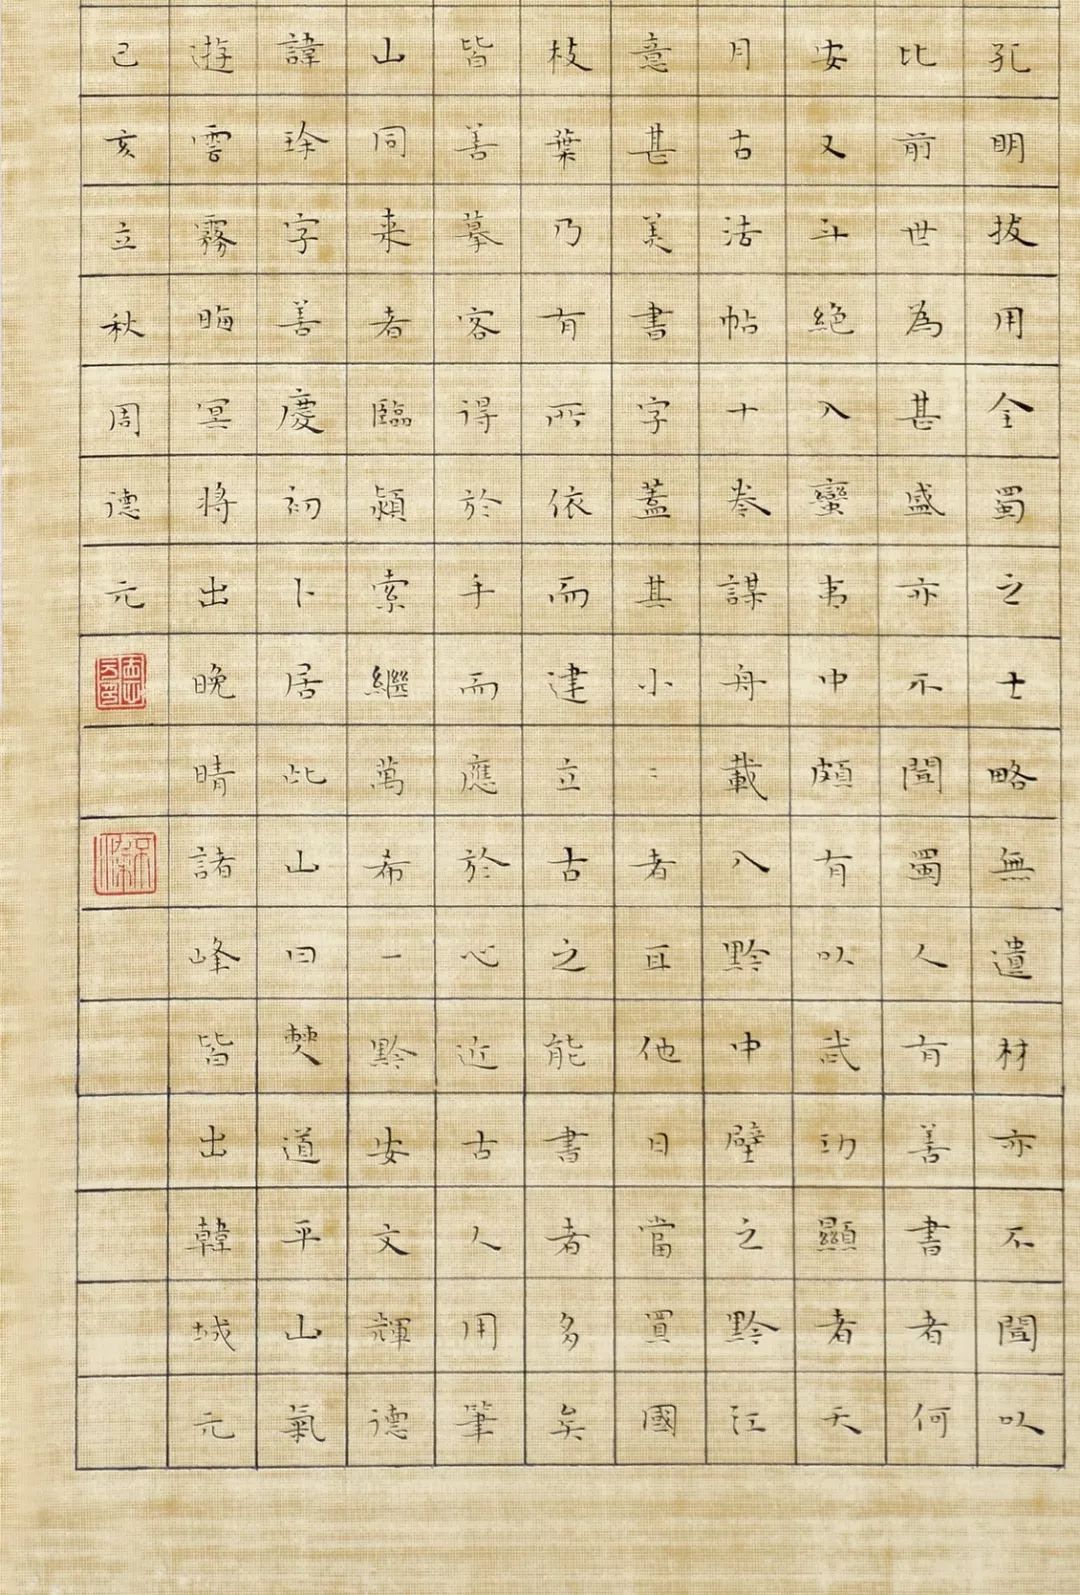 孔明拔用全蜀之士略無遺材亦不聞以
比前世為甚盛亦不聞蜀人有善書者何
安又斗絕入蠻夷中頗有以武功顯者天
月古法帖十卷謀舟載入黔中壁之黔江
意甚美書字蓋其小〻者耳他日當買國
枝葉乃有所依而建立古之能書者多矣
皆善摹客得於手而應於心近古人用筆
山同來者臨潁索繼萬希一黔安文輝德
諱珍字善慶初卜居此山曰僰道平山氣
遊雲霧晦冥將出晚晴諸峰皆出韓城元
己亥立秋周德元